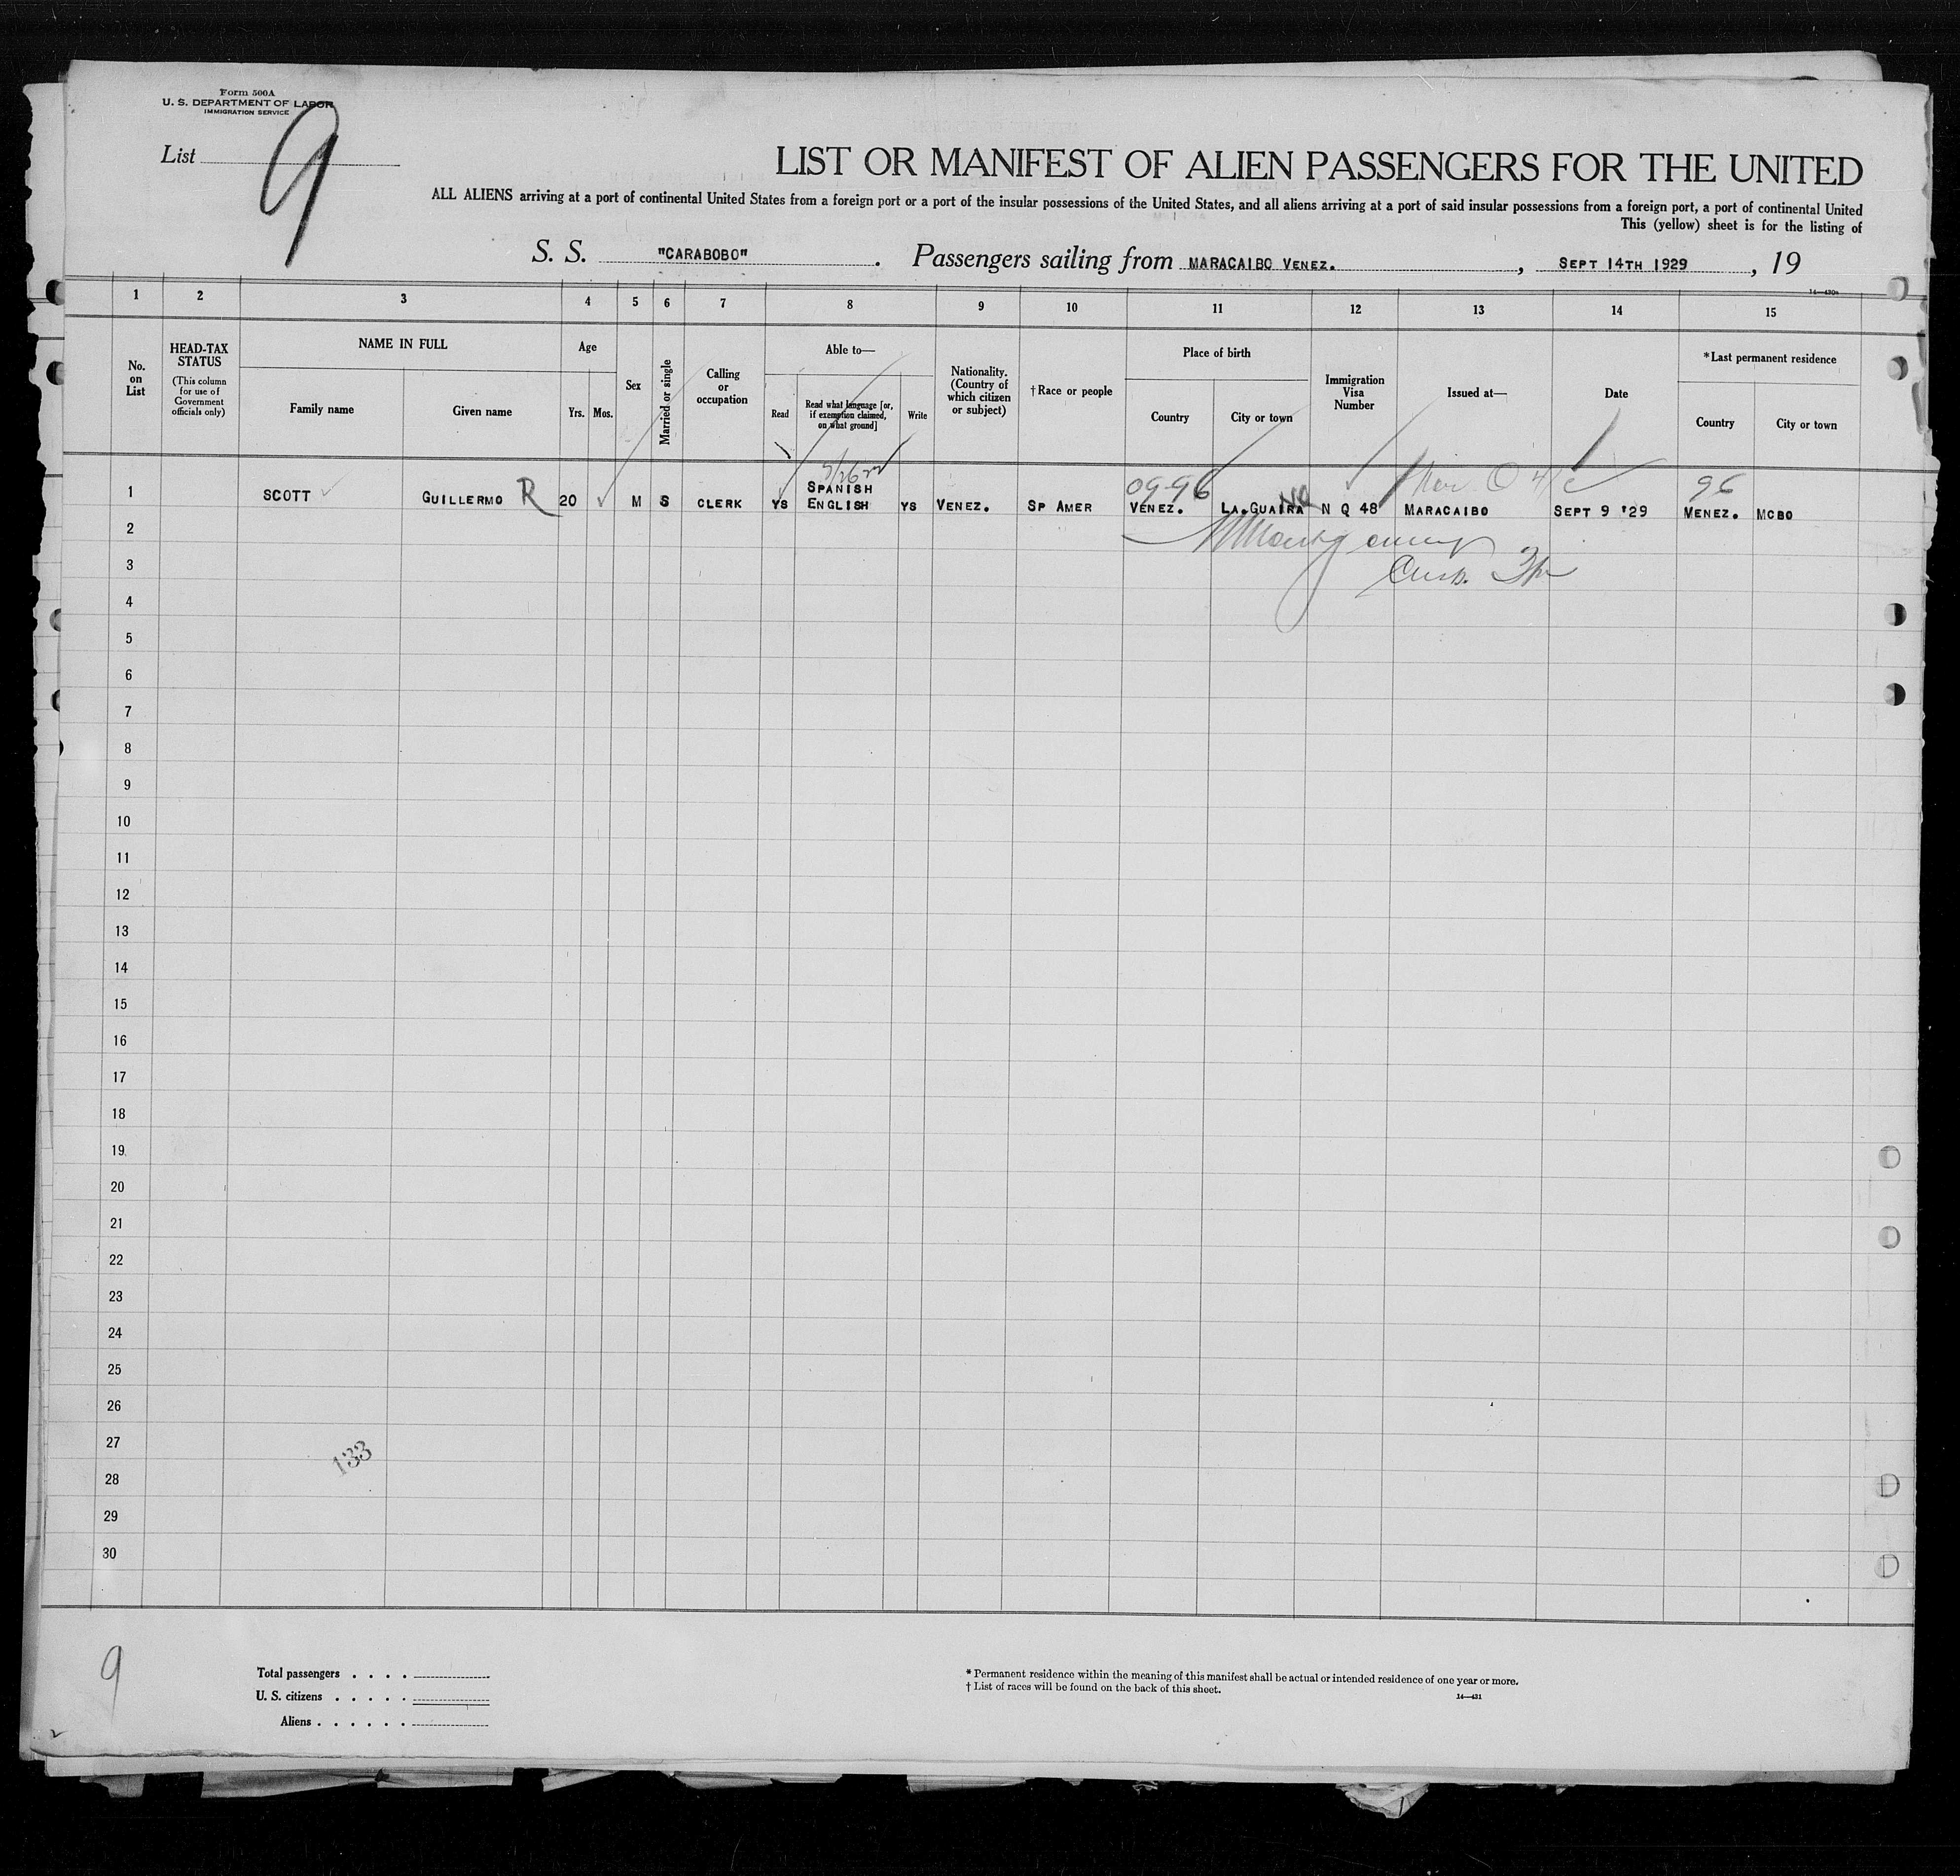 Form 500A
U. S. DEPARTMENT OF LABOR
IMMIGRATION SERVICE
List 9
LIST OR MANIFEST OF ALIEN PASSENGERS FOR THE UNITED
ALL ALIENS arriving at a port of continental United States from a foreign port or a port of the insular possessions of the United States, and all aliens arriving at a port of said insular possessions from a foreign port, a port of continental United
This (yellow) sheet is for the listing of
S. S. "CARABOBO". Passengers sailing from MARACAIBO VENEZ., SEPT 14TH 1929, 19
14—430a
1 2 3 4 5 6 7 8 9 10 11 12 13 14 15
No. on List
HEAD-TAX STATUS (This column for use of Government officials only)
NAME IN FULL
Family name
Given name
Age
Yrs.
Mos.
Sex
Married or single
Calling or occupation
Able to—
Read
Read what language [or, if exemption claimed, on what ground]
Write
Nationality. (Country of which citizen or subject)
† Race or people
Place of birth
Country
City or town
Immigration Visa Number
Issued at—
Date
*Last permanent residence
Country
City or town
09-96
96
1 SCOTT GUILLERMO R 20 M S CLERK YS SPANISH ENGLISH YS VENEZ. SP AMER VENEZ. LA.GUAIRA NO N Q 48 MARACAIBO SEPT 9 '29 VENEZ. MCBO
2
3
4
5
6
7
8
9
10
11
12
13
14
15
16
17
18
19
20
21
22
23
24
25
26
27
133
28
29
30
9
Total passengers . . . .
U. S. citizens . . . . .
Aliens . . . . . .
* Permanent residence within the meaning of this manifest shall be actual or intended residence of one year or more.
† List of races will be found on the back of this sheet.
14—431